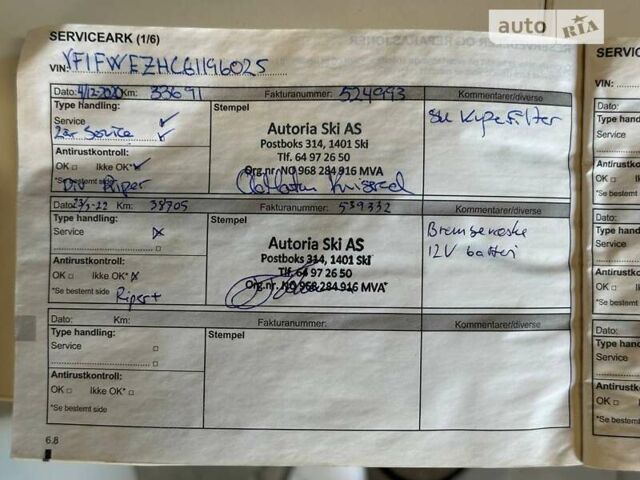 auto RIA
SERVICEARK (1/6)
VIN: VF1FWEZHC61196025
Dato: 4/12-2020 Km: 33691 Fakturanummer: 524993 Kommentarer/diverse
Type handling: Stempel
Service ✓
2år Service ✓
Autoria Ski AS
Postboks 314, 1401 Ski
Tlf. 64 97 26 50
Org.nr. NO 968 284 916 MVA
Antirustkontroll:
OK □ Ikke OK* ✓
*Se bestemt side
Div Riper
Dato: 23/5-22 Km: 38705 Fakturanummer: 539332 Kommentarer/diverse
Type handling: Stempel
Service x
Autoria Ski AS
Postboks 314, 1401 Ski
Tlf. 64 97 26 50
Org.nr. NO 968 284 916 MVA
Bremsevæske
12V batteri
Antirustkontroll:
OK □ Ikke OK* x
*Se bestemt side
Ripet
Dato: Km: Fakturanummer: Kommentarer/diverse
Type handling: Stempel
Service □
□
Antirustkontroll:
OK □ Ikke OK* □
*Se bestemt side
6.8
SERVICEA
VIN:
Dato:
Type hand
Service
Antirustko
OK □
*Se bestemt
Dato:
Type hand
Service
Antirustko
OK □
*Se bestemt
Dato:
Type hand
Service
Antirustko
OK □
*Se bestemt